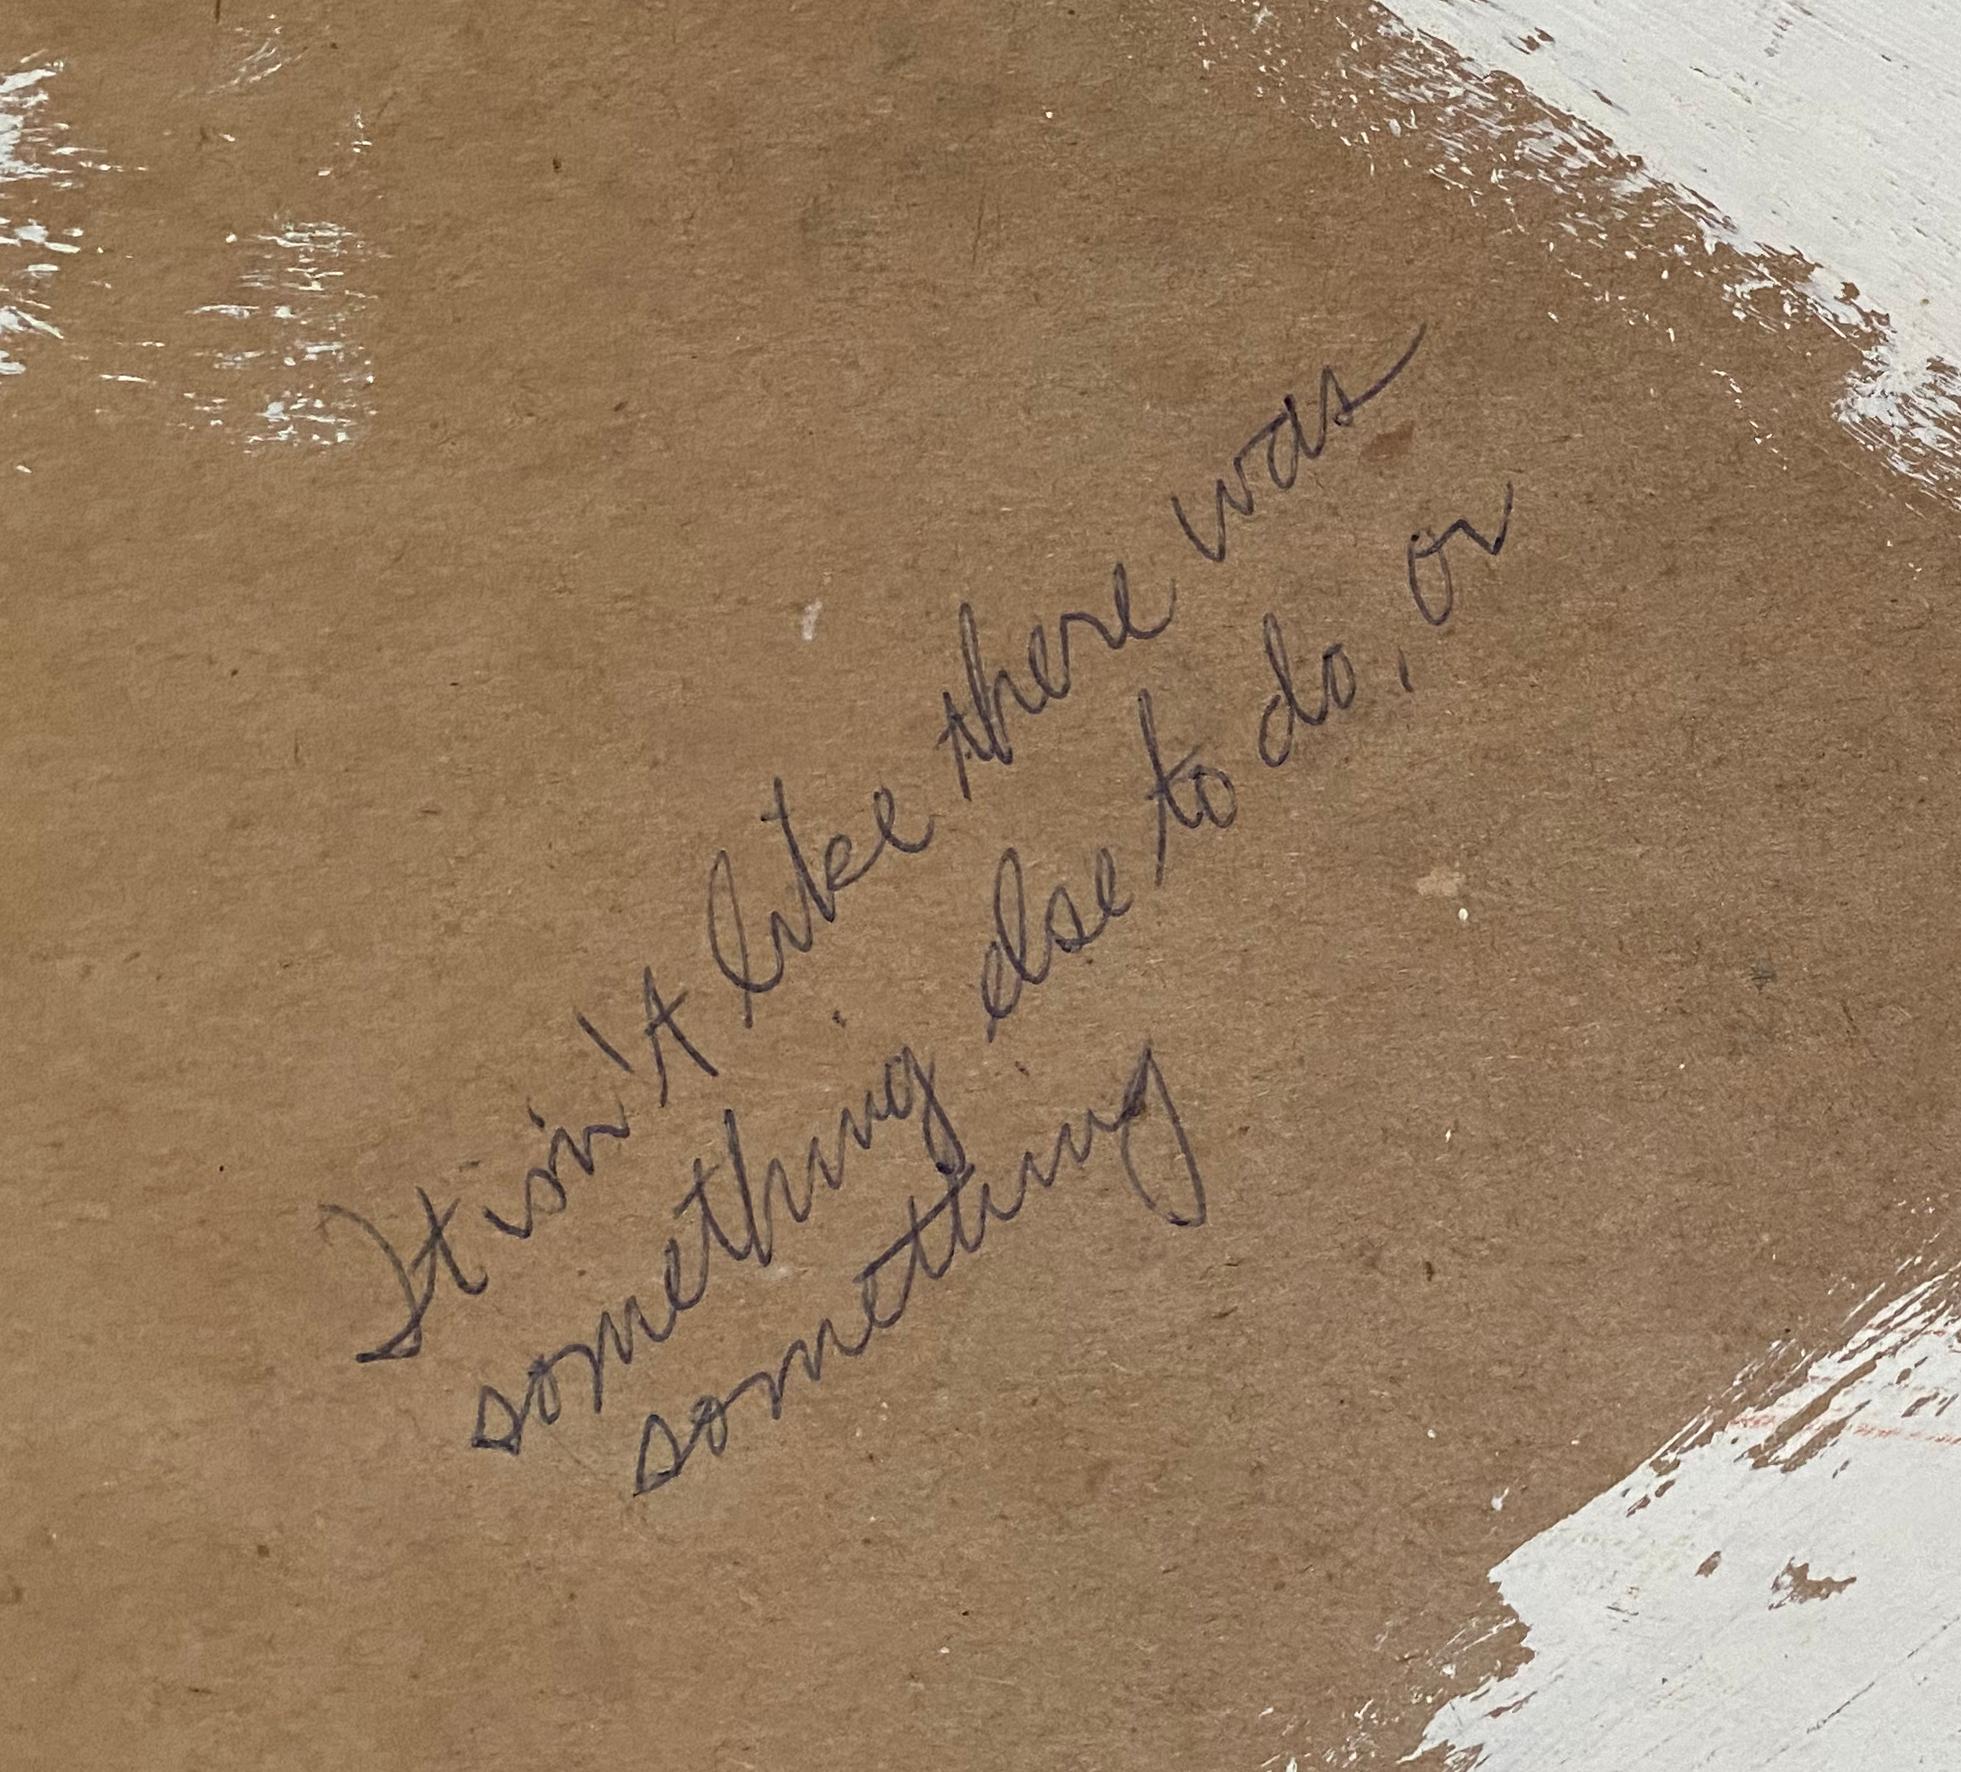 It isn't like there was
something else to do, or
something